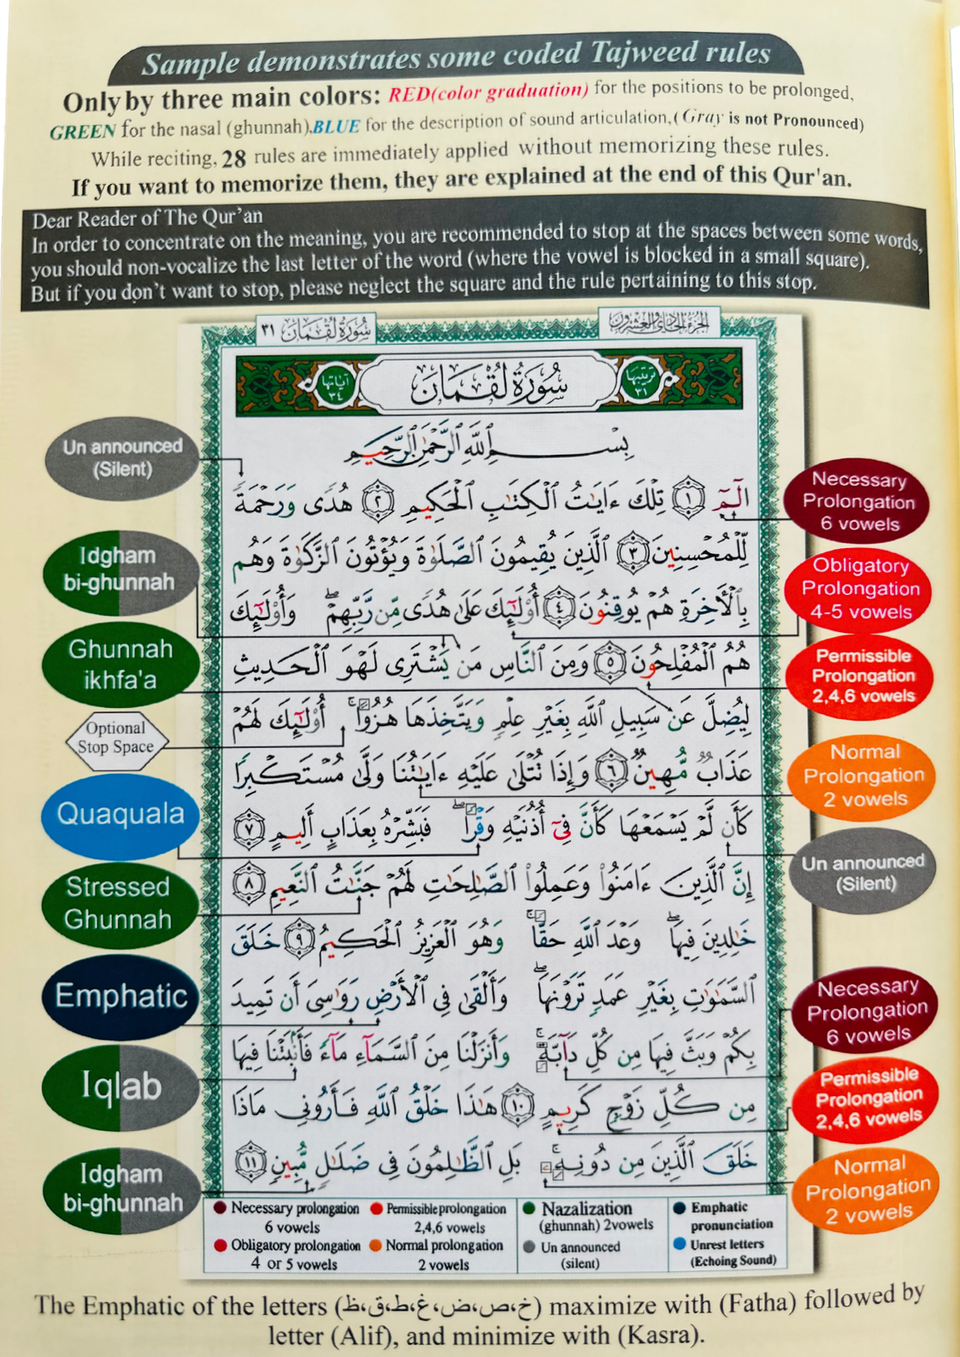 Sample demonstrates some coded Tajweed rules
Only by three main colors: RED(color graduation) for the positions to be prolonged,
GREEN for the nasal (ghunnah),BLUE for the description of sound articulation,(Gray is not Pronounced)
While reciting, 28 rules are immediately applied without memorizing these rules.
If you want to memorize them, they are explained at the end of this Qur'an.
Dear Reader of The Qur'an
In order to concentrate on the meaning, you are recommended to stop at the spaces between some words,
you should non-vocalize the last letter of the word (where the vowel is blocked in a small square).
But if you don't want to stop, please neglect the square and the rule pertaining to this stop.
الجزء الحادي والعشرون
سُورَةُ لُقْمَان ٣١
ترتيبها ٣١
سُورَةُ لُقْمَان
آياتها ٣٤
بِسْمِ اللَّهِ الرَّحْمَٰنِ الرَّحِيمِ
الٓمٓ ١ تِلْكَ ءَايَٰتُ الْكِتَٰبِ الْحَكِيمِ ٢ هُدًى وَرَحْمَةً
لِّلْمُحْسِنِينَ ٣ الَّذِينَ يُقِيمُونَ الصَّلَوٰةَ وَيُؤْتُونَ الزَّكَوٰةَ وَهُم
بِالْأَخِرَةِ هُمْ يُوقِنُونَ ٤ أُوْلَٰٓئِكَ عَلَىٰ هُدًى مِّن رَّبِّهِمْ ۖ وَأُوْلَٰٓئِكَ
هُمُ الْمُفْلِحُونَ ٥ وَمِنَ النَّاسِ مَن يَشْتَرِى لَهْوَ الْحَدِيثِ
لِيُضِلَّ عَن سَبِيلِ اللَّهِ بِغَيْرِ عِلْمٍ وَيَتَّخِذَهَا هُزُوًا ۚ أُوْلَٰٓئِكَ لَهُمْ
عَذَابٌ مُّهِينٌ ٦ وَإِذَا تُتْلَىٰ عَلَيْهِ ءَايَٰتُنَا وَلَّىٰ مُسْتَكْبِرًا
كَأَن لَّمْ يَسْمَعْهَا كَأَنَّ فِىٓ أُذُنَيْهِ وَقْرًا ۖ فَبَشِّرْهُ بِعَذَابٍ أَلِيمٍ ٧
إِنَّ الَّذِينَ ءَامَنُوا۟ وَعَمِلُوا۟ الصَّٰلِحَٰتِ لَهُمْ جَنَّٰتُ النَّعِيمِ ٨
خَٰلِدِينَ فِيهَا ۖ وَعْدَ اللَّهِ حَقًّا ۚ وَهُوَ الْعَزِيزُ الْحَكِيمُ ٩ خَلَقَ
السَّمَٰوَٰتِ بِغَيْرِ عَمَدٍ تَرَوْنَهَا ۖ وَأَلْقَىٰ فِى الْأَرْضِ رَوَٰسِىَ أَن تَمِيدَ
بِكُمْ وَبَثَّ فِيهَا مِن كُلِّ دَآبَّةٍ ۚ وَأَنزَلْنَا مِنَ السَّمَآءِ مَآءً فَأَنۢبَتْنَا فِيهَا
مِن كُلِّ زَوْجٍ كَرِيمٍ ١٠ هَٰذَا خَلْقُ اللَّهِ فَأَرُونِى مَاذَا
خَلَقَ الَّذِينَ مِن دُونِهِ ۚ بَلِ الظَّٰلِمُونَ فِى ضَلَٰلٍ مُّبِينٍ ١١
Un announced
(Silent)
Idgham
bi-ghunnah
Ghunnah
ikhfa'a
Optional
Stop Space
Quaquala
Stressed
Ghunnah
Emphatic
Iqlab
Idgham
bi-ghunnah
Necessary
Prolongation
6 vowels
Obligatory
Prolongation
4-5 vowels
Permissible
Prolongation
2,4,6 vowels
Normal
Prolongation
2 vowels
Un announced
(Silent)
Necessary
Prolongation
6 vowels
Permissible
Prolongation
2,4,6 vowels
Normal
Prolongation
2 vowels
Necessary prolongation
6 vowels
Permissible prolongation
2,4,6 vowels
Nazalization
(ghunnah) 2vowels
Emphatic
pronunciation
Obligatory prolongation
4 or 5 vowels
Normal prolongation
2 vowels
Un announced
(silent)
Unrest letters
(Echoing Sound)
The Emphatic of the letters (خ،ص،ض،غ،ط،ق،ظ) maximize with (Fatha) followed by
letter (Alif), and minimize with (Kasra).